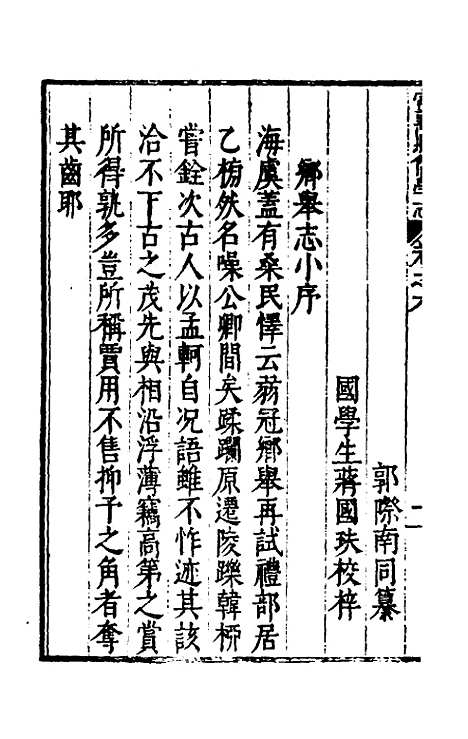 郭際南同纂
國學生蔣國珠校梓
鄉舉志小序
海虞蓋有桑民懌云弱冠鄉舉再試禮部居
乙榜然名噪公卿間矣蹂躪原遷陵躒韓柳
嘗銓次古人以孟軻自况語雖不怍迹其該
洽不下古之茂先與相沿浮薄竊高第之賞
所得孰多豈所稱賈用不售抑予之角者奪
其齒耶